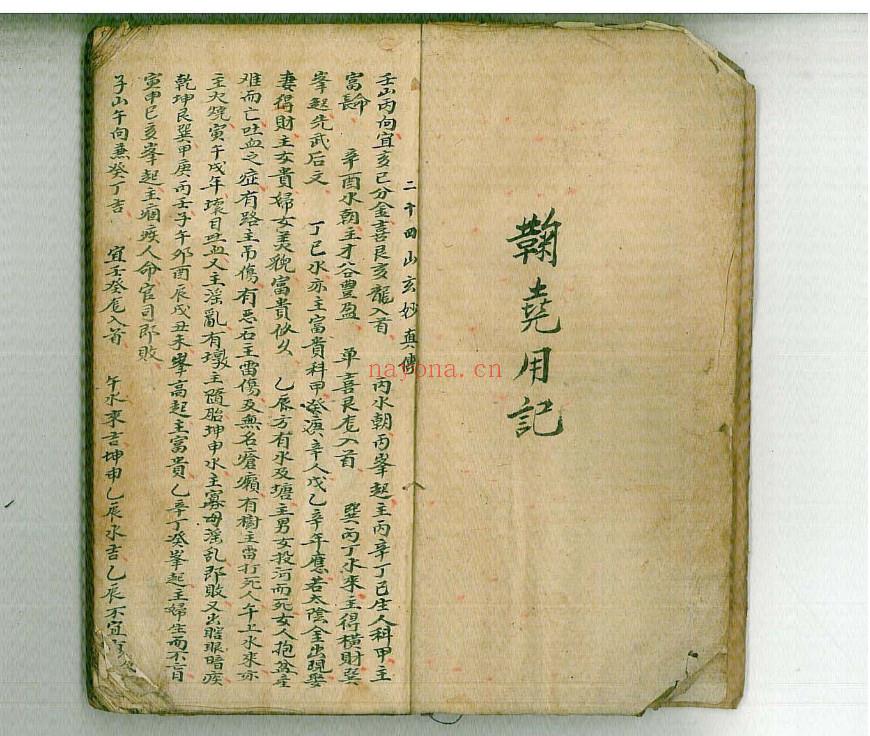 鞠堯用記
二十四山玄妙真傳
壬山丙向宜亥巳分金喜艮亥龍入首 丙水朝丙峯起主丙辛丁巳生人科甲主
富 辛酉水朝主才谷豐盈 单喜艮龙入首 巽丙丁水来主得橫財巽
峯起先武后文 丁巳水亦主富貴科甲癸庚辛人戊乙辛年應若太陰金出現娶
妻得財主女貴婦女美貌富貴悠久 乙辰方有水及塘主男女投河而死女人抱盆產
难而亡吐血之症有路主吊傷有惡石主雷傷及無名瘡癩有樹主雷打死人午上水来亦
主火燒寅午戌年壞目吐血又主淫亂有墩主隨胎坤申水主寡母淫乱即敗又出瞎眼暗疾
乾坤艮巽甲庚丙壬子午卯酉辰戌丑未峯高起主富貴乙辛丁癸峯起主婦生而不育
寅甲巳亥峯起主痼疾人命官司即敗
子山午向兼癸丁吉 宜壬癸龙入首 午水来吉坤申乙辰水吉乙辰不宜
nayona.cn